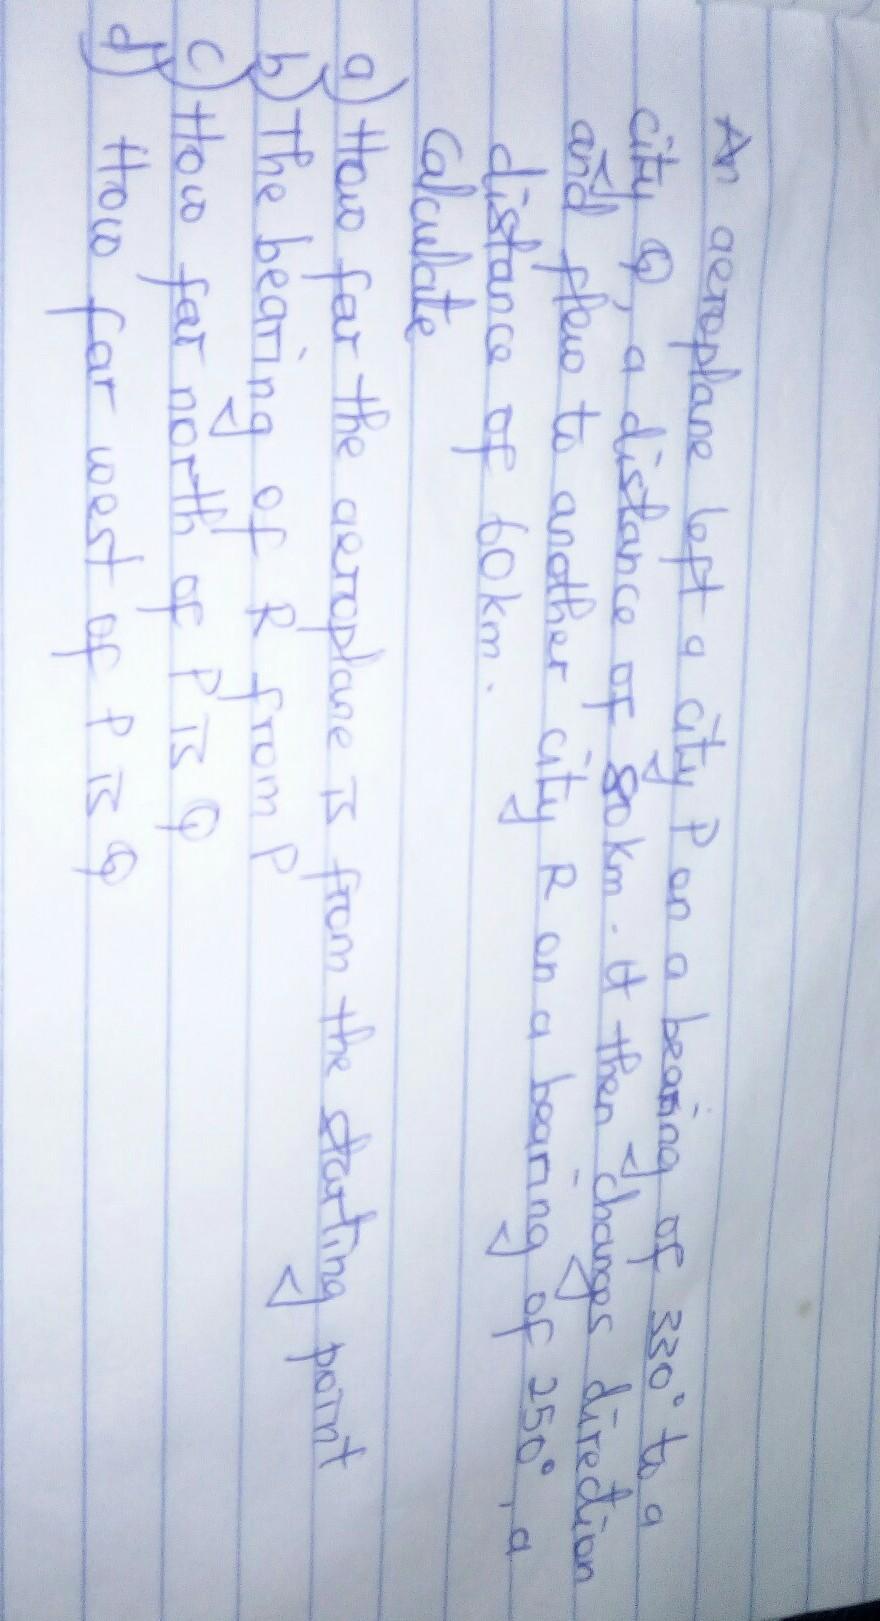 An aeroplane left a city P on a bearing of 330° to a
city Q, a distance of 80km. It then changes direction
and flew to another city R on a bearing of 250°, a
distance of 60km.
Calculate
a) How far the aeroplane is from the starting point
b) The bearing of R from P
c) How far north of P is Q
d) How far west of P is Q